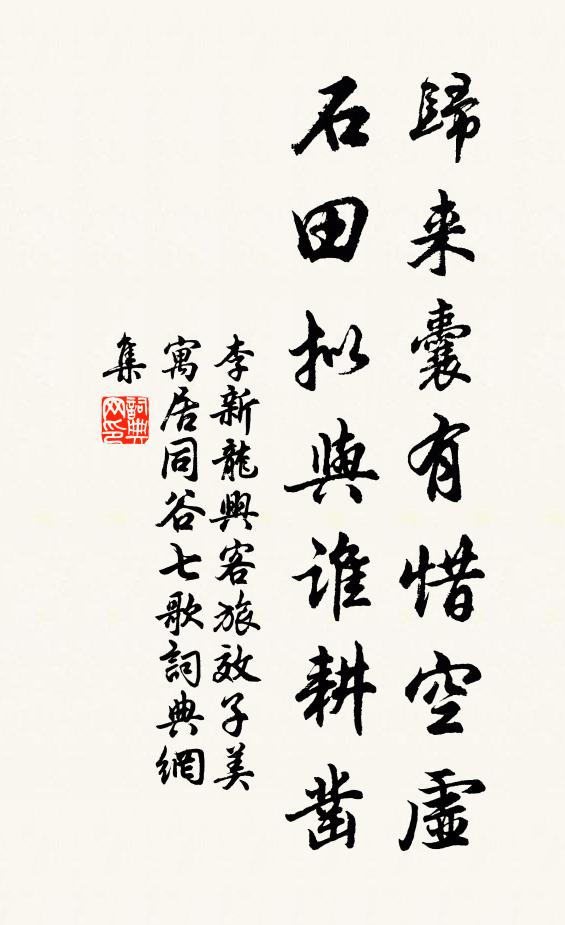 歸来囊有惜空虛
石田拟與誰耕凿
李新龍興客旅效子美
寓居同谷七歌詞典網
集
詞典
网印